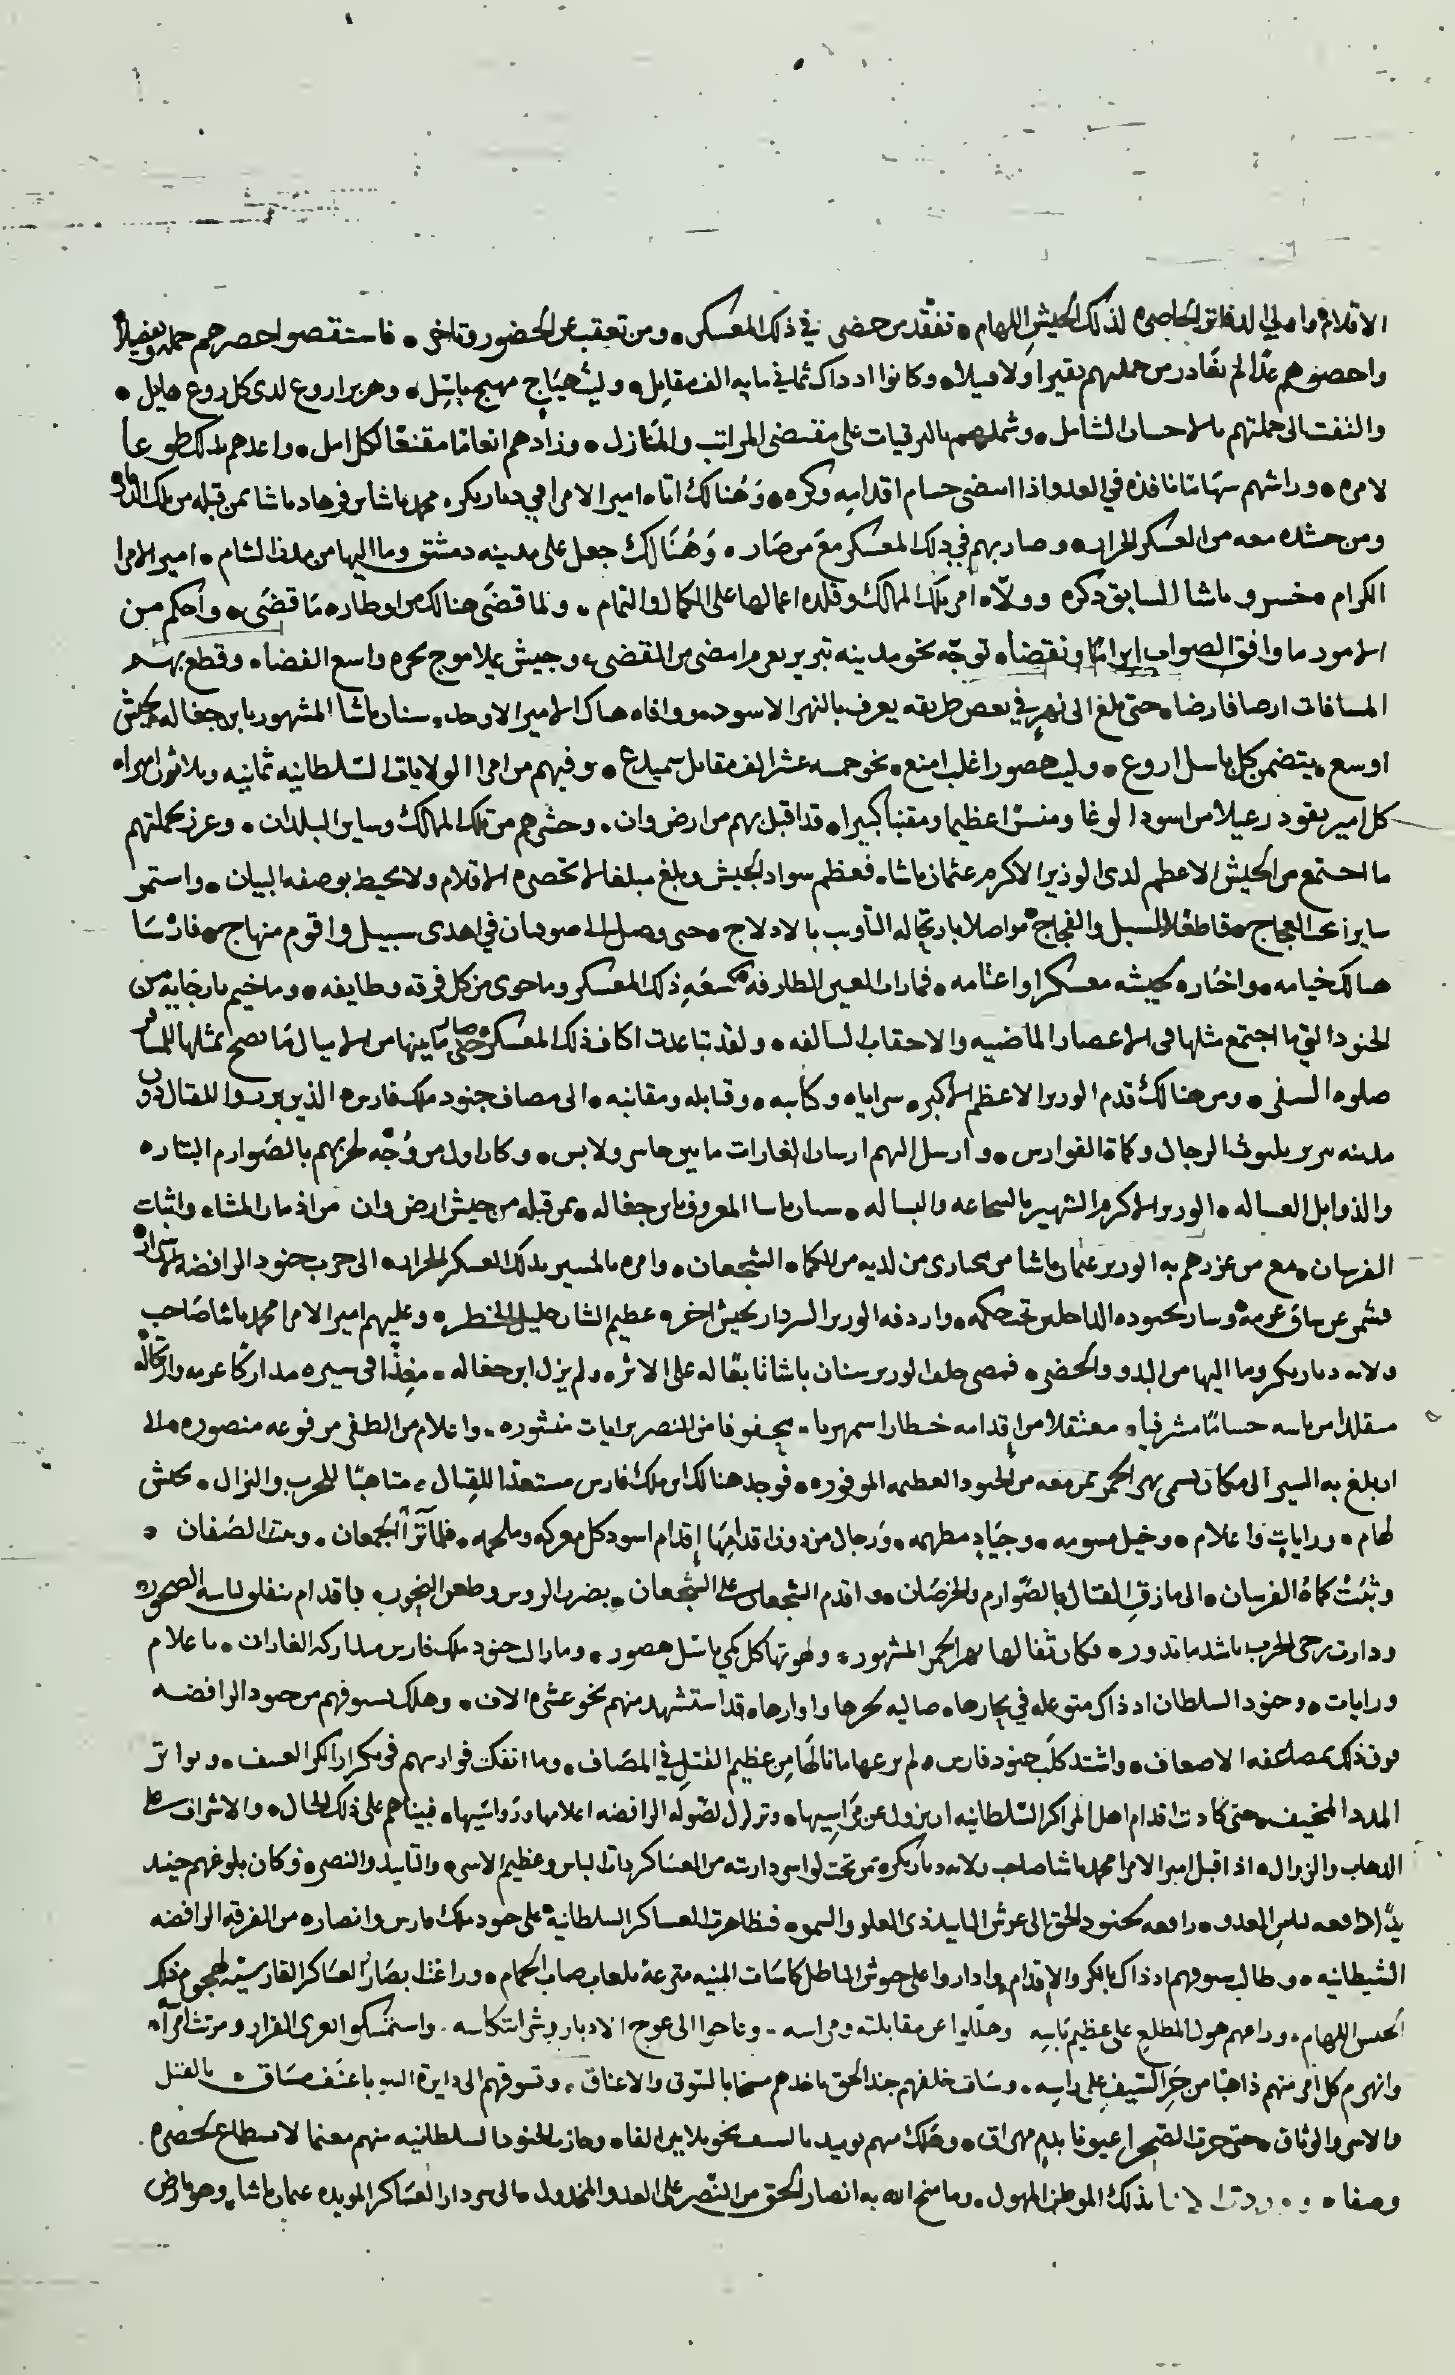 الاقلام واولي الدفاتر الحاصره لذلك الجيش اللهام تفقد من حضر في ذلك المعسكر ومن تعقب عن الحضور وتاخر فاستقصوا حصرهم جمله وتفصيلا
واحصوهم عدا لم يغادر من جملتهم نقيرا ولا فتيلا وكانوا اذ ذاك ثماني مايه الف مقاتل وليث هياج مهيج باسل وهزبر اروع لدى كل روع هايل
والتفت الى جملتهم بالاحسان الشامل وشملهم بالترقيات على مقتضى المراتب والمنازل وزادهم انعاما مقنعا لكل امل واعدهم بذلك طوعا
لامره وراشهم سهاما نافذه في العدو اذا امضى حسام اقدامه وكره وهنالك اتاه امير الامرا في ديار بكر محمد باشا بن فرهاد باشا بمن قبله من تلك الديار
ومن حشده معه من العسكر الجرار وصار بهم في ذلك المعسكر مع من صار وهنالك جعل على مدينه دمشق وما اليها من مدن الشام امير الامرا
الكرام خسرو باشا السابق ذكره وولاه امر تلك الممالك وقلده اعمالها على الكمال والتمام ولما قضى هنالك من اوطاره ما قضى واحكم من
الامور ما وافق الصواب ابراما ونقضا توجه نحو مدينه تبريز بعزم امضى من القضى وجيش يملا موج بحره واسع الفضا وقطع بهم
المسافات ارضا فارضا حتى بلغ الى نهر في بعض طريقه يعرف بالنهر الاسود ووافاه هناك الامير الاوحد سنان باشا المشهور بابن جغاله بجيش
اوسع يتضمن كل باسل اروع وليث هصور اغلب امنع نحو خمسه عشر الف مقاتل سميدع وفيهم من امرا الولايات السلطانيه ثمانيه وثلاثون اميرا
كل امير يقود رعيلا من اسود الوغا ومنسرا عظيما ومقنبا كبيرا قد اقبل بهم من ارض وان وحشرهم من تلك الممالك وساير البلدان وعزز بجملتهم
ما اجتمع من الجيش الاعظم لدى الوزير الاكرم عثمان باشا فعظم سواد الجيش وبلغ مبلغا لا تحصره الاقلام ولا يحيط بوصفه البيان واستمر
سايرا تحت العجاج قاطعا للسبل والفجاج مواصلا بارتحاله التأويب بالادلاج حتى وصل الى صوفيان في اهدى سبيل واقوم منهاج فارسا
هنالك خيامه واختاره لجيشه معسكرا واعتامه فما رات العين الطارفه كسعه ذلك المعسكر وما حوى من كل فرقه وطايفه وما خيم بارجايه من
الجنود التي ما اجتمع مثلها في الاعصار الماضيه والاحقاب السالفه ولقد تباعدت اكناف ذلك المعسكر حتى صار ما بينها من الاميال ما تصح بمثلها للمسافر
صلوه السفر ومن هنالك قدم الوزير الاعظم الاكبر سراياه وكتايبه وقنابله ومقانبه الى مصاف جنود ملك فارس الذين برزوا للقتال دون
مدينه تبريز بليوث الرجال وكماة الفوارس وارسل اليهم ارسال الغارات ما بين حاسر ولابس وكان اول من وجه لحربهم بالصوارم البتاره
والذوابل العساله الوزير الاكرم الشهير بالشجاعه والبساله سنان باشا المعروف بابن جغاله بمن قبله من جيش ارض وان من اذمار المشاه واثبات
الفرسان مع من عززهم به الوزير عثمان باشا من مختارى من لديه من الكماه الشجعان وامره بالمسير بذلك العسكر الجرار الى حرب جنود الرافضه
فشمر عن ساق عزمه وسار بجنوده الداخلين تحت حكمه واردفه الوزير السردار بجيش اخر عظيم الشان جليل الخطر وعليهم امير الامرا محمد باشا صاحب
ولايه ديار بكر وما اليها من البدو والحضر فمضى خلف الوزير سنان باشا تابعا له على الاثر ولم يزل ابن جغاله مغذا في سيره مداركا عزمه وارتحاله
متقلدا من باسه حساما مشرفيا معتقلا من اقدامه خطارا سمهريا محفوفا من النصر برايات منشوره واعلام من الظفر مرفوعه منصوره الى
ان بلغ به المسير الى مكان يسمى نهر الجمر بمن معه من الجنود العظيمه الموفوره فوجد هنالك ابن ملك فارس مستعدا للقتال متاهبا للحرب والنزال بجيش
لهام ورايات واعلام وخيل مسومه وجياد مطهمه ورجال من دون اقدامها اقدام اسود كل معركه وملحمه فلما ترآا الجمعان وتدانت الصفان
وثبت كماة الفرسان الى مازق القتال بالصوارم والخرصان واقدم الشجعان على الشجعان بضرب الروس وطعن النحور باقدام تنفلق لباسه الصخور
ودارت رحى الحرب باشد ما تدور فكان ثفالها نهر الجمر المشهور ولهوتها كل كمي باسل هصور وما زالت جنود ملك فارس متداركه الغارات باعلام
ورايات وجنود السلطان اذ ذاك متوغله في بحارها صاليه لحرها واوارها قد استشهد منهم نحو عشره الاف وهلك بسيوفهم من جنود الرافضه
فوق ذلك بمضاعفه الاضعاف واشتد كلب جنود فارس ولم يرعها ما نالها من عظيم القتل في المصاف وما انفكت فوارسهم في تكرار الكر العنيف وتواتر
المدد المخيف حتى كادت اقدام اهل المراكز السلطانيه ان تزول عن مراسيها وتزلزل لصوله الرافضه اعلامها ورواسيها فبينا هم على ذلك الحال والاشراف على
الذهاب والزوال اذ اقبل امير الامرا محمد باشا صاحب ولايه ديار بكر بمن تحت لوا سردارته من العساكر بذات الباس وعظيم الاسر والتاييد والنصر وكان بلوغهم حينيذ
يدا دافعه لباس العدو رافعه لجنود الحق الى عرش التاييد ذي العلو والسمو فظاهرت العساكر السلطانيه على جنود ملك فارس وانصاره من الفرقه الرافضه
الشيطانيه وطالت سيوفهم اذ ذاك بالكر والاقدام واداروا على جيوش الباطل كاسات المنيه مترعة بلعاب صاب الحمام وراغت بصار العساكر الفارسيه لهجوم ذلك
الجيش اللهام وراعهم هول المطلع على عظيم باسه وحللوا عن مقابلته ومراسه وعاجوا الى عوج الادبار وشر انتكاسه واستمسكوا بعرى الفرار ومرت امراه
وانهزم كل امر منهم ذاهبا من حر السيف على راسه وساق خلفهم جند الحق ياخذهم مسحا بالسوق والاعناق وتسوقهم الى دايرة السو باعنف مساق بالقتل
والاسر والوثاق حتى جرت الصحرا عيونا بدم مهراق وهلك منهم يوميذ بالسيف نحو ثلاثين الفا وحازت الجنود السلطانيه منهم مغنما لا يستطاع لحصره
وصفا ووردت الانبا بذلك الموطن المهول وما منح الله به انصار الحق من النصر على العدو المخذول الى سردار العساكر المويده عثمان باشا وهو بارض